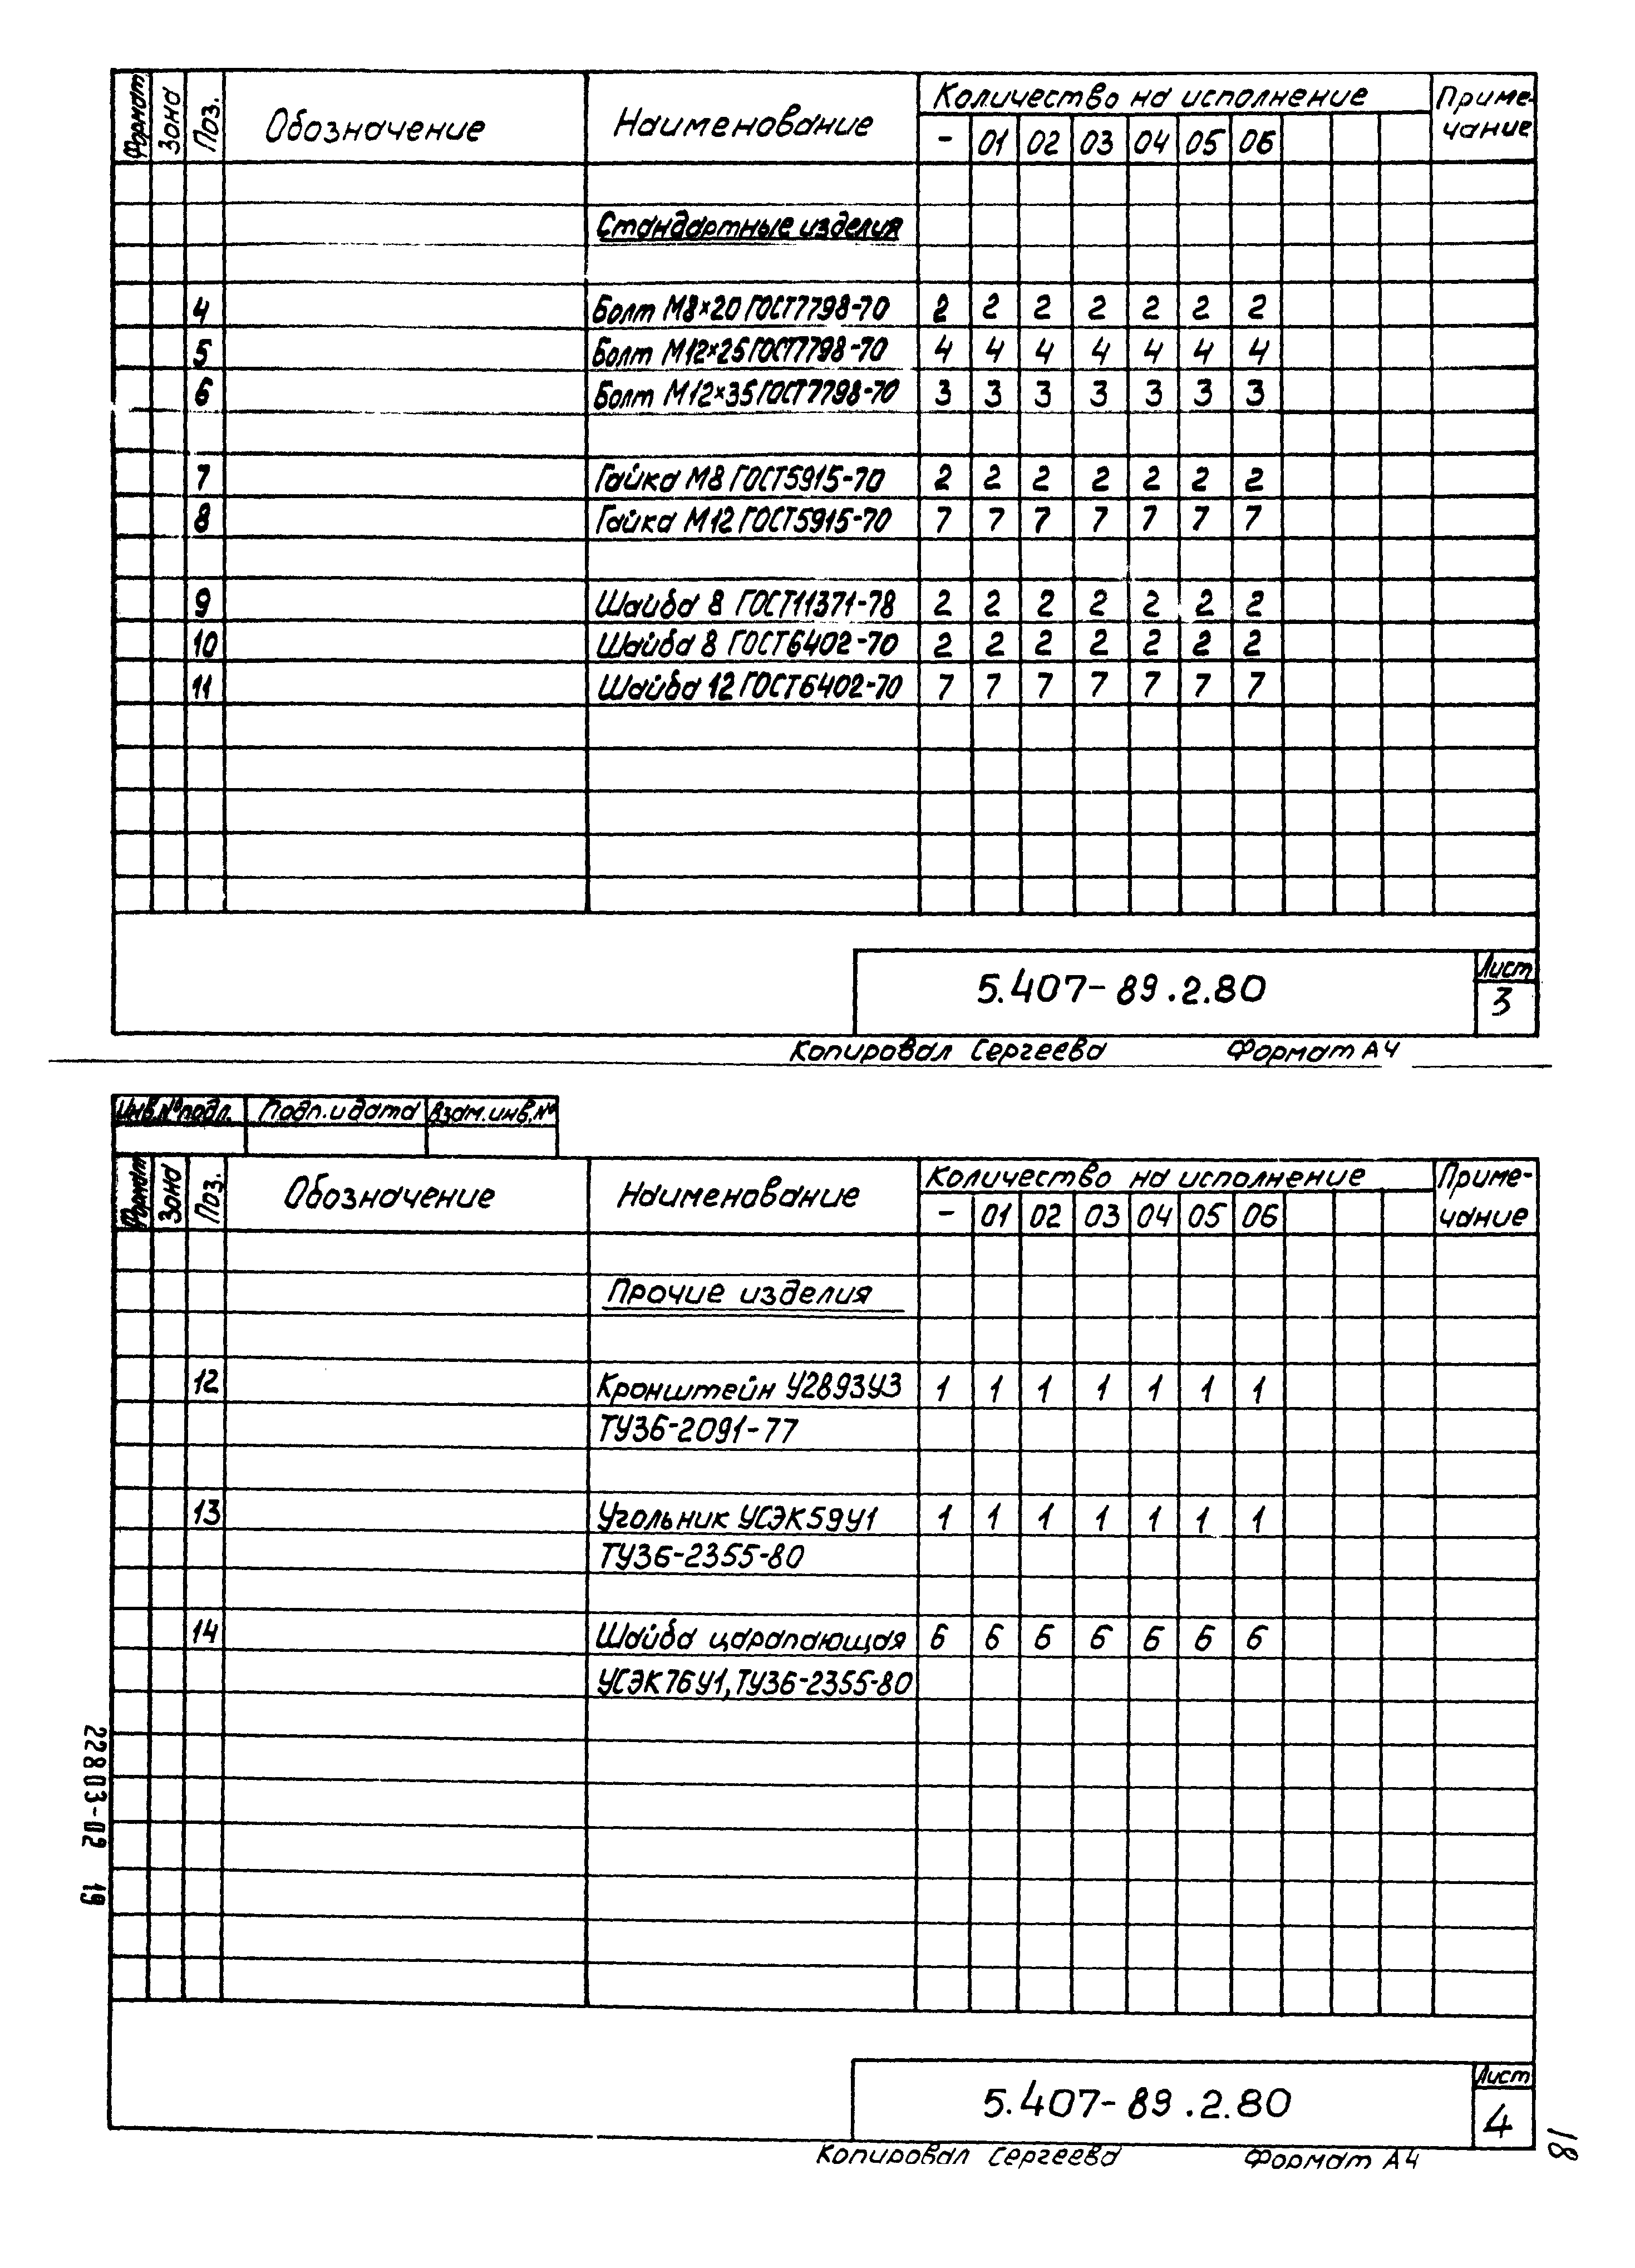 Формат Зона Поз. Обозначение Наименование Количество на исполнение Приме-
чание
- 01 02 03 04 05 06
Стандартные изделия
4 Болт М8×20 ГОСТ7798-70 2 2 2 2 2 2 2
5 Болт М12×25 ГОСТ7798-70 4 4 4 4 4 4 4
6 Болт М12×35 ГОСТ7798-70 3 3 3 3 3 3 3
7 Гайка М8 ГОСТ5915-70 2 2 2 2 2 2 2
8 Гайка М12 ГОСТ5915-70 7 7 7 7 7 7 7
9 Шайба 8 ГОСТ11371-78 2 2 2 2 2 2 2
10 Шайба 8 ГОСТ6402-70 2 2 2 2 2 2 2
11 Шайба 12 ГОСТ6402-70 7 7 7 7 7 7 7
5.407-89.2.80
Лист
3
Копировал Сергеева Формат А4
Инв.№ подл. Подп. и дата Взам. инв.№
Формат Зона Поз. Обозначение Наименование Количество на исполнение Приме-
чание
- 01 02 03 04 05 06
Прочие изделия
12 Кронштейн У2893У3 1 1 1 1 1 1 1
ТУ36-2091-77
13 Угольник УСЭК59У1 1 1 1 1 1 1 1
ТУ36-2355-80
14 Шайба царапающая 6 6 6 6 6 6 6
УСЭК76У1, ТУ36-2355-80
5.407-89.2.80
Лист
4
Копировал Сергеева Формат А4
22803-02 19
18